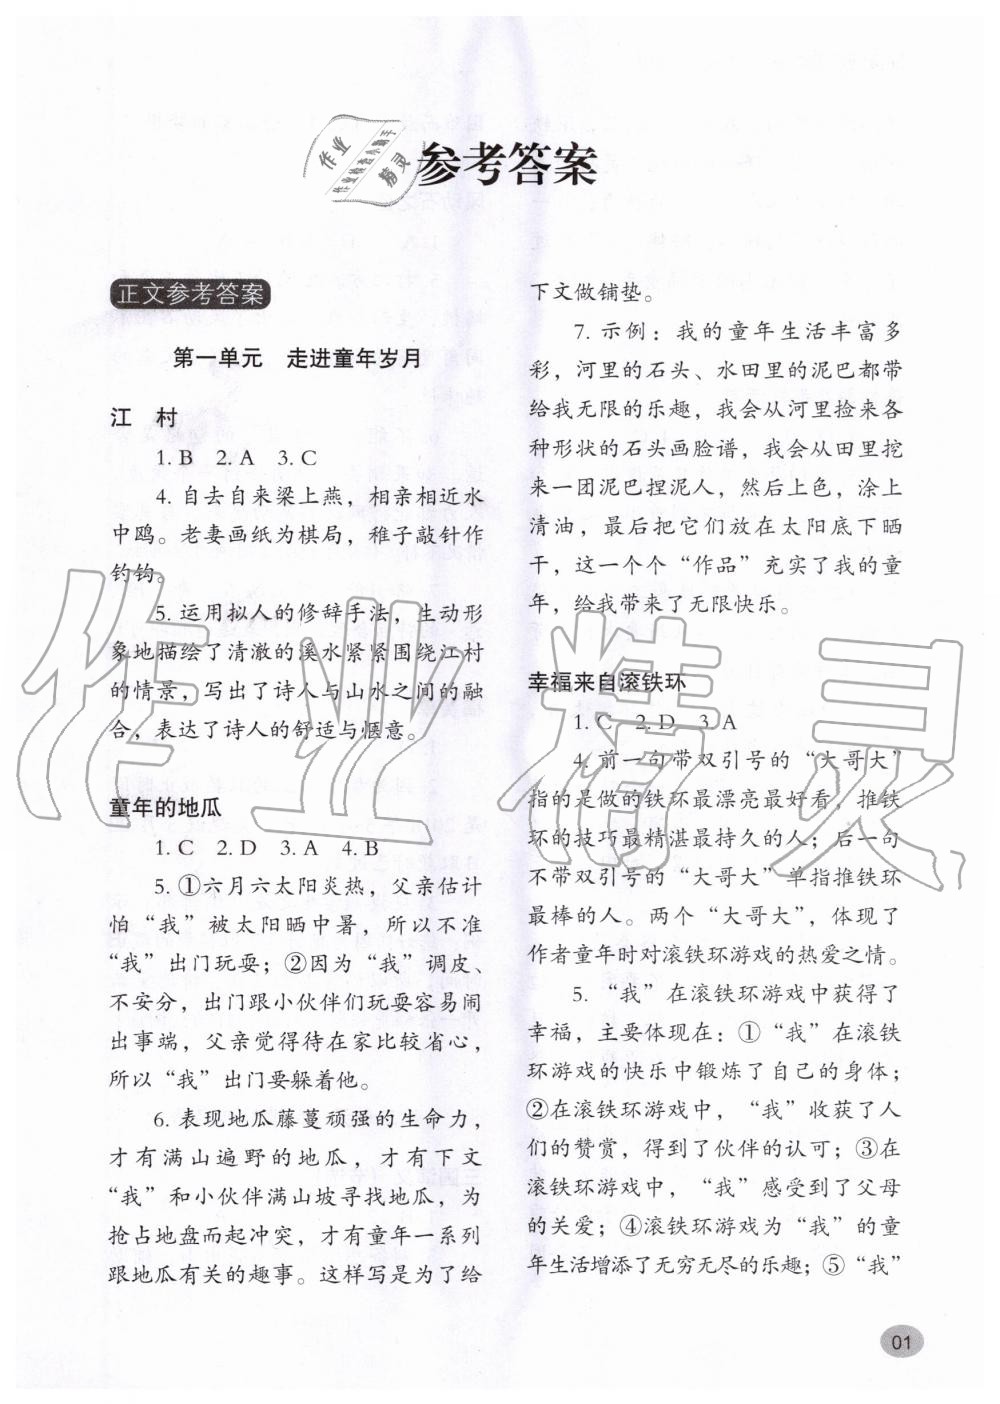 参考答案
正文参考答案
第一单元　走进童年岁月
江　村
1. B　2. A　3. C
4. 自去自来梁上燕，相亲相近水
中鸥。老妻画纸为棋局，稚子敲针作
钓钩。
5. 运用拟人的修辞手法，生动形
象地描绘了清澈的溪水紧紧围绕江村
的情景，写出了诗人与山水之间的融
合，表达了诗人的舒适与惬意。
童年的地瓜
1. C　2. D　3. A　4. B
5. ①六月六太阳炎热，父亲估计
怕“我”被太阳晒中暑，所以不准
“我”出门玩耍；②因为“我”调皮、
不安分，出门跟小伙伴们玩耍容易闹
出事端，父亲觉得待在家比较省心，
所以“我”出门要躲着他。
6. 表现地瓜藤蔓顽强的生命力，
才有满山遍野的地瓜，才有下文
“我”和小伙伴满山坡寻找地瓜，为
抢占地盘而起冲突，才有童年一系列
跟地瓜有关的趣事。这样写是为了给
下文做铺垫。
7. 示例：我的童年生活丰富多
彩，河里的石头、水田里的泥巴都带
给我无限的乐趣，我会从河里捡来各
种形状的石头画脸谱，我会从田里挖
来一团泥巴捏泥人，然后上色，涂上
清油，最后把它们放在太阳底下晒
干，这一个个“作品”充实了我的童
年，给我带来了无限快乐。
幸福来自滚铁环
1. C　2. D　3. A
4. 前一句带双引号的“大哥大”
指的是做的铁环最漂亮最好看，推铁
环的技巧最精湛最持久的人；后一句
不带双引号的“大哥大”单指推铁环
最棒的人。两个“大哥大”，体现了
作者童年时对滚铁环游戏的热爱之情。
5. “我”在滚铁环游戏中获得了
幸福，主要体现在：①“我”在滚铁
环游戏的快乐中锻炼了自己的身体；
②在滚铁环游戏中，“我”收获了人
们的赞赏，得到了伙伴的认可；③在
滚铁环游戏中，“我”感受到了父母
的关爱；④滚铁环游戏为“我”的童
年生活增添了无穷无尽的乐趣；⑤“我”
01
作业
作业检查小助手
精灵
作业精灵